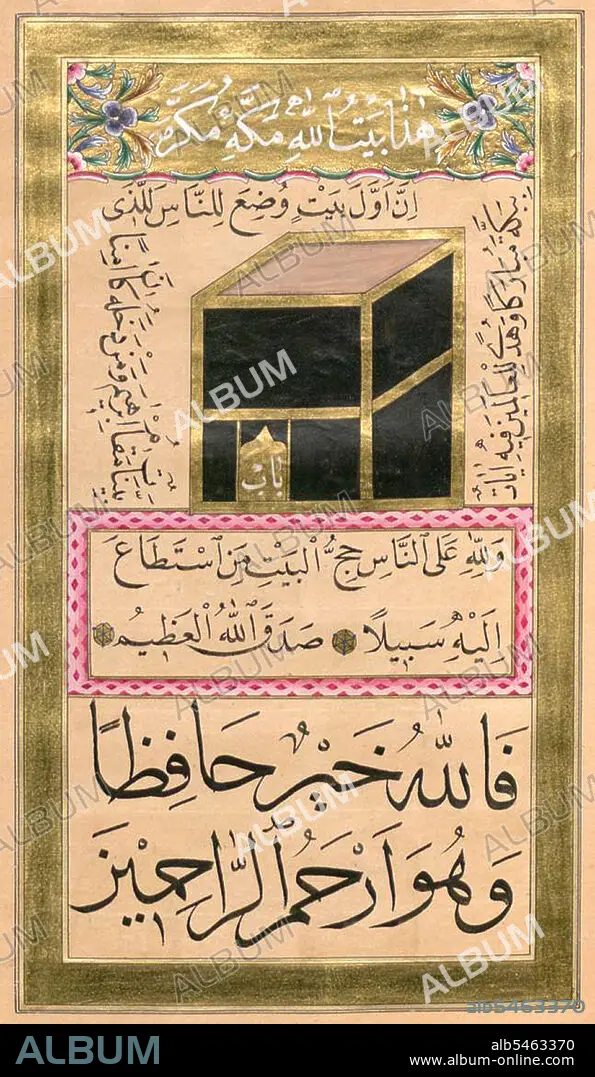 هٰذَا بَيْتُ اللّٰهِ مَكَّةُ مُكَرَّمْ
اِنَّ اَوَّلَ بَيْتٍ وُضِعَ لِلنَّاسِ لَلَّذى
بِبَكَّةَ مُبَارَكًا وَهُدًى لِلْعَالَمينَ فيهِ اٰيَاتٌ
بَيِّنَاتٌ مَقَامُ اِبْرٰهيمَ وَمَنْ دَخَلَهُ كَانَ اٰمِنًا
بَابْ
وَلِلّٰهِ عَلَى النَّاسِ حِجُّ الْبَيْتِ مَنِ اسْتَطَاعَ
اِلَيْهِ سَبيلًا صَدَقَ اللّٰهُ الْعَظيمُ
فَاللّٰهُ خَيْرٌ حَافِظًا
وَهُوَ اَرْحَمُ الرَّاحِمينَ
ALBUM
alb5463370
ALBUM
alb5463370
www.album-online.com